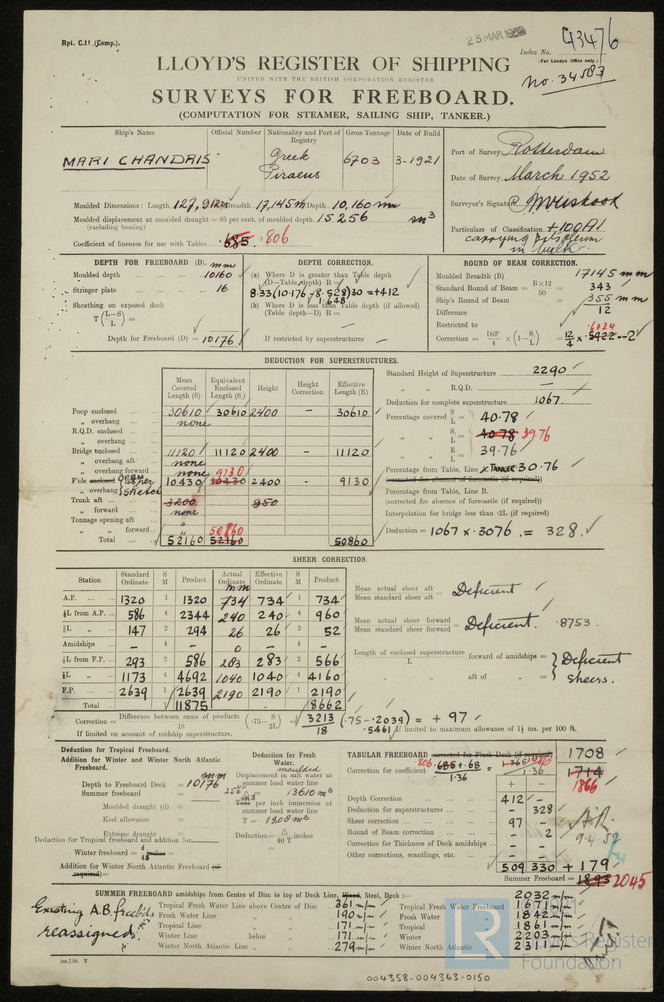 Rpt. C.11 (Comp.).
25 MAR 1952
Index No. 43476
(For London Office only.)
No. 34587
LLOYD'S REGISTER OF SHIPPING
UNITED WITH THE BRITISH CORPORATION REGISTER
SURVEYS FOR FREEBOARD.
(COMPUTATION FOR STEAMER, SAILING SHIP, TANKER.)
Ship's Name Official Number Nationality and Port of Registry Gross Tonnage Date of Build
MARI CHANDRIS Greek Piraeus 6703 3-1921
Port of Survey Rotterdam
Date of Survey March 1952
Surveyor's Signature
Particulars of Classification +100A1
carrying petroleum
in bulk
Moulded Dimensions: Length 127,912m Breadth 17,145m Depth 10,160 mm
Moulded displacement at moulded draught = 85 per cent. of moulded depth 15256 m3
(excluding bossing)
Coefficient of fineness for use with Tables .685 .806
DEPTH FOR FREEBOARD (D). mm
Moulded depth 10160
Stringer plate 16
Sheathing on exposed deck
T (L-S/L) =
Depth for Freeboard (D) = 10176
DEPTH CORRECTION.
(a) Where D is greater than Table depth
(D-Table depth) R =
8.33(10.176 - 8.528)30 = +412
1.648
(b) Where D is less than Table depth (if allowed)
(Table depth-D) R =
If restricted by superstructures
ROUND OF BEAM CORRECTION.
Moulded Breadth (B) 17145 mm
Standard Round of Beam = B×12/50 = 343
Ship's Round of Beam = 355 mm
Difference 12
Restricted to
Correction = Diff/4 × (1-S/L) = 12/4 × .5922 .6024 = -2
DEDUCTION FOR SUPERSTRUCTURES.
Mean Covered Length (S) Equivalent Enclosed Length (S1) Height Height Correction Effective Length (E)
Poop enclosed 30610 30610 2400 - 30610
„ overhang none
R.Q.D. enclosed
„ overhang
Bridge enclosed 11120 11120 2400 - 11120
„ overhang aft none
„ overhang forward none 9130
F'cle enclosed open 10430 10430 2400 - 9130
„ overhang
Trunk aft 3200 950
„ forward none
Tonnage opening aft „
„ „ forward „ 50860
Total 52160 52160 50860
Standard Height of Superstructure 2290
„ „ R.Q.D. -
Deduction for complete superstructure 1067
Percentage covered S/L = 40.78
„ „ S1/L = 40.78 39.76
„ „ E/L = 39.76
Percentage from Table, Line TANKER 30.76
(corrected for absence of forecastle (if required))
Percentage from Table, Line B.
(corrected for absence of forecastle (if required))
Interpolation for bridge less than ·2L (if required)
Deduction = 1067 x .3076 = 328
SHEER CORRECTION.
Station Standard Ordinate S M Product Actual Ordinate mm Effective Ordinate S M Product
A.P. 1320 1 1320 734 734 1 734
⅙L from A.P. 586 4 2344 240 240 4 960
⅓L „ 147 2 294 26 26 2 52
Amidships - 4 - 0 - 4 -
⅓L from F.P. 293 2 586 283 283 2 566
⅙L „ 1173 4 4692 1040 1040 4 4160
F.P. 2639 1 2639 2190 2190 1 2190
Total 11875 8662
Mean actual sheer aft
Mean standard sheer aft = Deficient
Mean actual sheer forward
Mean standard sheer forward = Deficient. .8753
Length of enclosed superstructure forward of amidships = Deficient
L
„ aft of „ = sheers.
Correction = Difference between sums of products/18 (·75-S/2L) = 3213/18 (.75-.2039) = +97
.5461
If limited on account of midship superstructure.
If limited to maximum allowance of 1½ ins. per 100 ft.
Deduction for Tropical Freeboard.
Addition for Winter and Winter North Atlantic Freeboard.
Depth to Freeboard Deck = 10176 mm
Summer freeboard =
Moulded draught (d) =
Keel allowance =
Extreme draught =
Deduction for Tropical freeboard and addition for
Winter freeboard = d/48
Addition for Winter North Atlantic Freeboard (if required) =
Deduction for Fresh Water. moulded
Displacement in salt water at summer load water line
13610 m3
Tons per inch immersion at summer load water line
T = 1908 m3
Deduction = Δ/40T inches
TABULAR FREEBOARD corrected for Flush Deck (if required) 1708
Correction for coefficient .806 .685+.68/1.36 = 1.365/1.36 1714 1866
+ -
Depth Correction 412 -
Deduction for superstructures - 328
Sheer correction 97 -
Round of Beam correction - 2
Correction for Thickness of Deck amidships - -
Other corrections, scantlings, etc. - -
509 330 +179
Summer Freeboard = 1893 2045
9.4.52
SUMMER FREEBOARD amidships from Centre of Disc to top of Deck Line, Wood, Steel, Deck:— 2032 m/m
Existing A.B. freeb'ds
reassigned.
Tropical Fresh Water Line above Centre of Disc 361 m/m Tropical Fresh Water Freeboard 1671 m/m
Fresh Water Line „ „ 190 m/m Fresh Water „ 1842 m/m
Tropical Line „ „ 171 m/m Tropical „ 1861 m/m
Winter Line below „ 171 m/m Winter „ 2203 m/m
Winter North Atlantic Line „ „ 279 m/m Winter North Atlantic „ 2311 m/m
LR Lloyd's Register
Foundation
004358-004363-0150